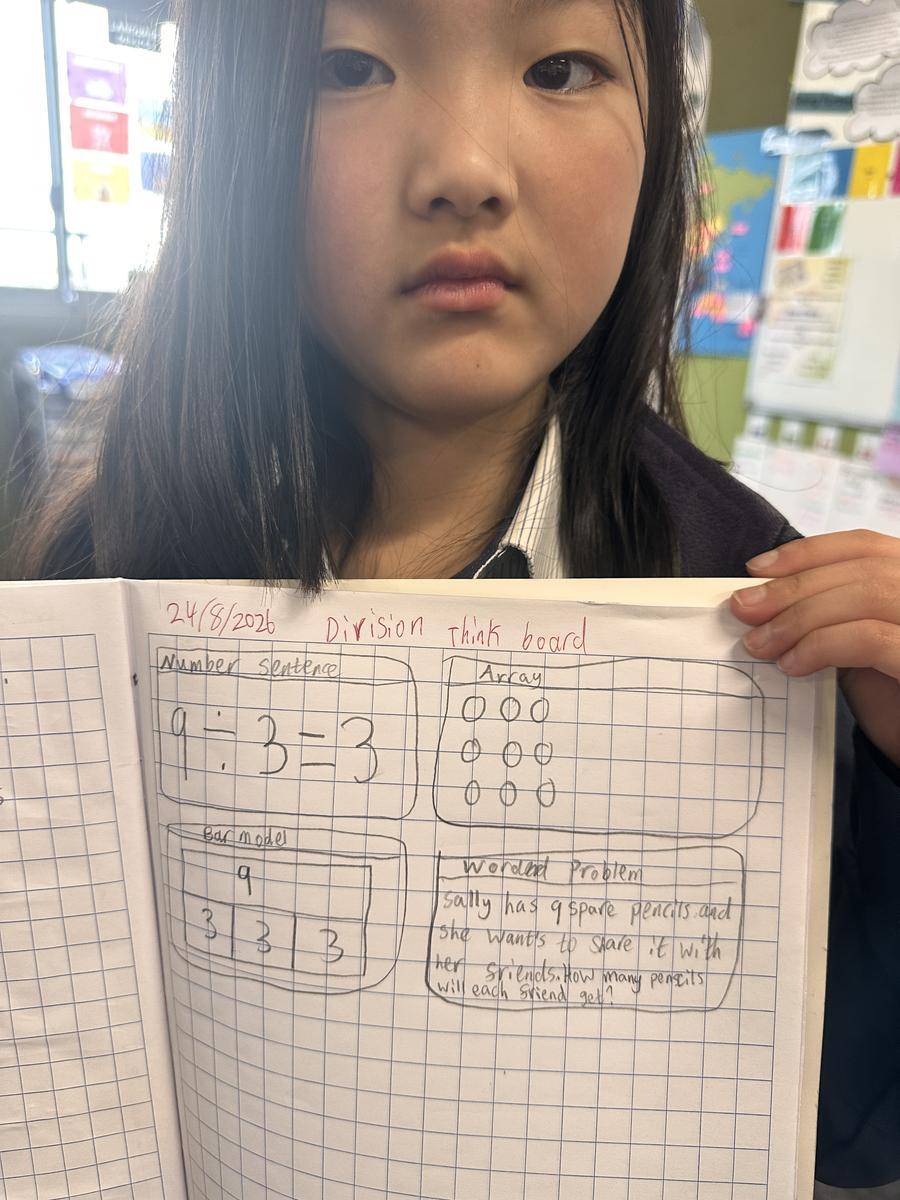 24/8/2026 Division Think board
Number sentence
9 ÷ 3 = 3
Array
Bar model
9
3 3 3
Worded Problem
Sally has 9 spare pencils and
she want's to share it with
her friends. How many pencils
will each friend get?